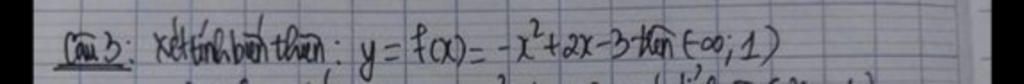 Câu 3: Xét tính biến thiên: y = f(x) = -x² + 2x - 3 trên (-∞; 1)